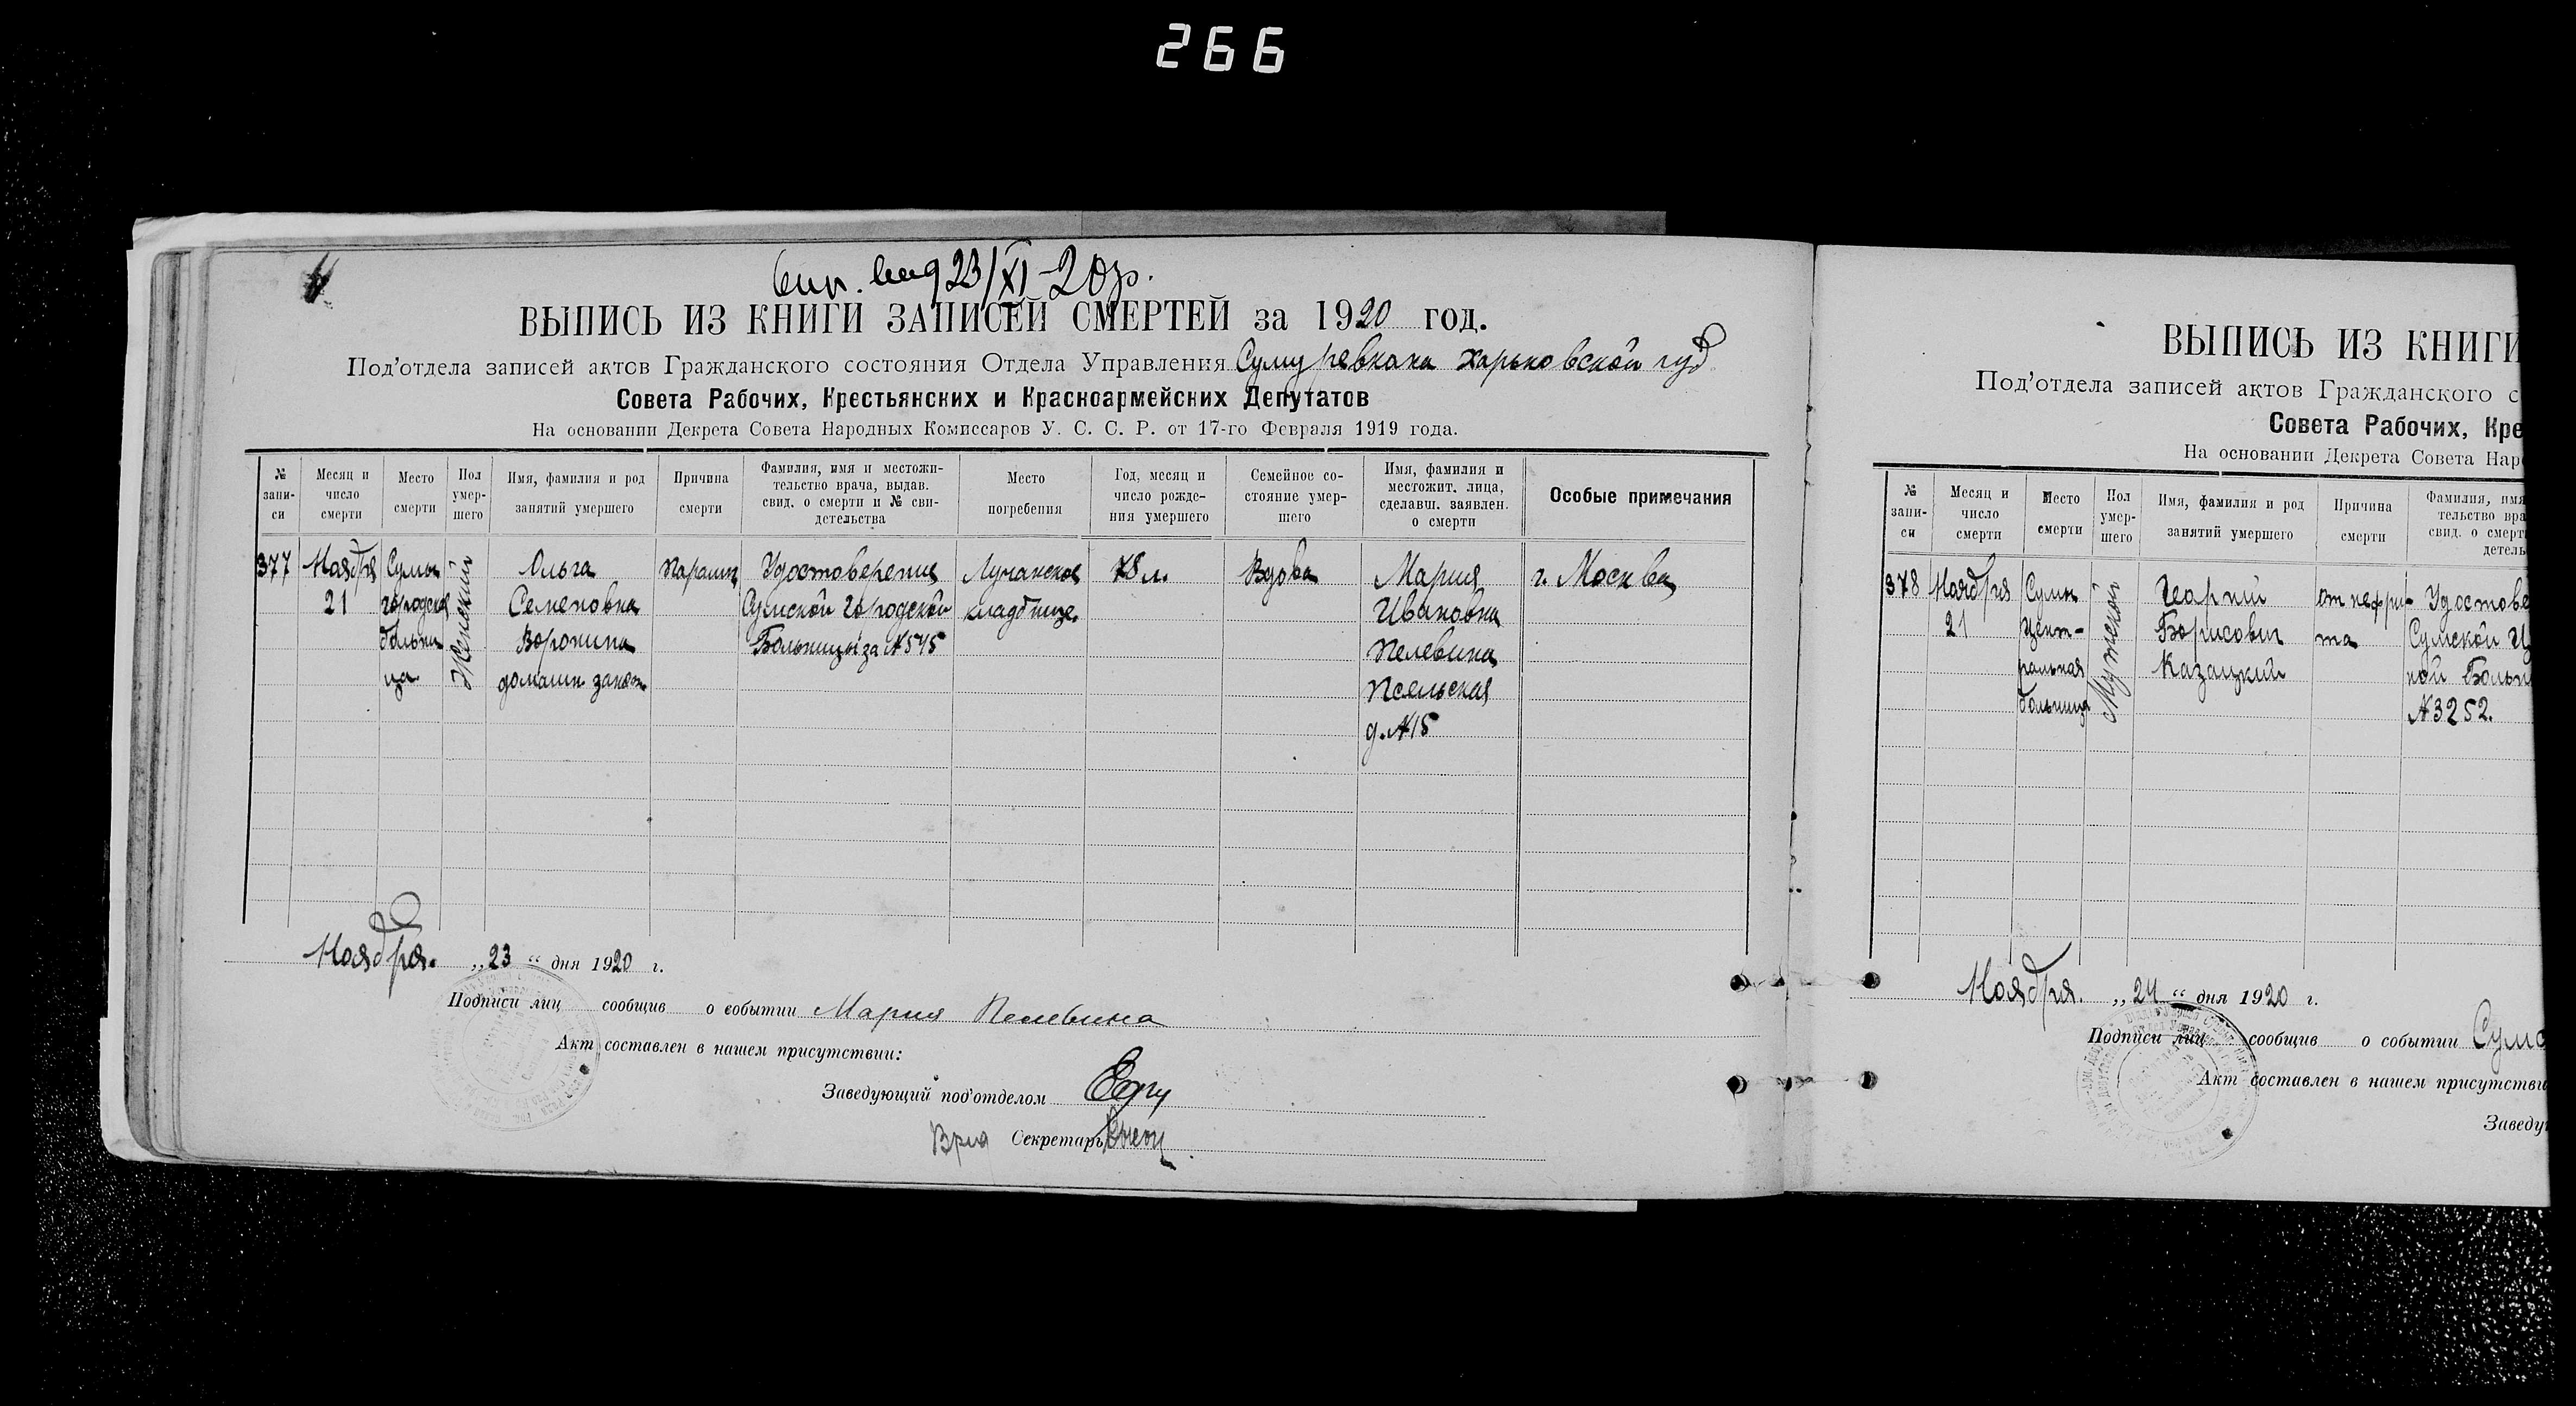 266
вып. выд 23/XI-20 г.
ВЫПИСЬ ИЗ КНИГИ ЗАПИСЕЙ СМЕРТЕЙ за 1920 год.
Под'отдела записей актов Гражданского состояния Отдела Управления Сумуревкома Харьковской губ
Совета Рабочих, Крестьянских и Красноармейских Депутатов
На основании Декрета Совета Народных Комиссаров У. С. С. Р. от 17-го Февраля 1919 года.
№ запи-си
Месяц и число смерти
Место смерти
Пол умер-шего
Имя, фамилия и род занятий умершего
Причина смерти
Фамилия, имя и местожи-
тельство врача, выдав.
свид. о смерти и № сви-
детельства
Место погребения
Год, месяц и
число рожде-
ния умершего
Семейное со-
стояние умер-
шего
Имя, фамилия и
местожит. лица,
сделавш. заявлен.
о смерти
Особые примечания
377
Ноября
21
Сумы
городская
больни
ца
Женский
Ольга
Семеновна
Воронина
домашн занят
Паралич
Удостоверения
Сумской городской
Больницы за №545
Лучанское
кладбище.
78 л.
Вдова
Мария
Ивановна
Пелевина
Псельская
д. №15
г. Москва
Ноября. „23“ дня 1920 г.
Подписи лиц сообщив о событии Мария Пелевина
Акт составлен в нашем присутствии:
Заведующий под'отделом
Врид Секретарь
ВЫПИСЬ ИЗ КНИГИ
Под'отдела записей актов Гражданского с
Совета Рабочих, Кре
На основании Декрета Совета Нар
№ запи-си
Месяц и число смерти
Место смерти
Пол умер-шего
Имя, фамилия и род занятий умершего
Причина смерти
Фамилия, имя
тельство вра
свид. о смерт
детель
378
Ноября
21
Сумы
Цент-
ральная
больница
Мужской
Георгий
Борисович
Казацкий
от нефри-
та
Удостове
Сумской Ц
ной Больн
№3252.
Ноября. „24“ дня 1920 г.
Подписи лиц сообщив о событии Сумс
Акт составлен в нашем присутстви
Заведу